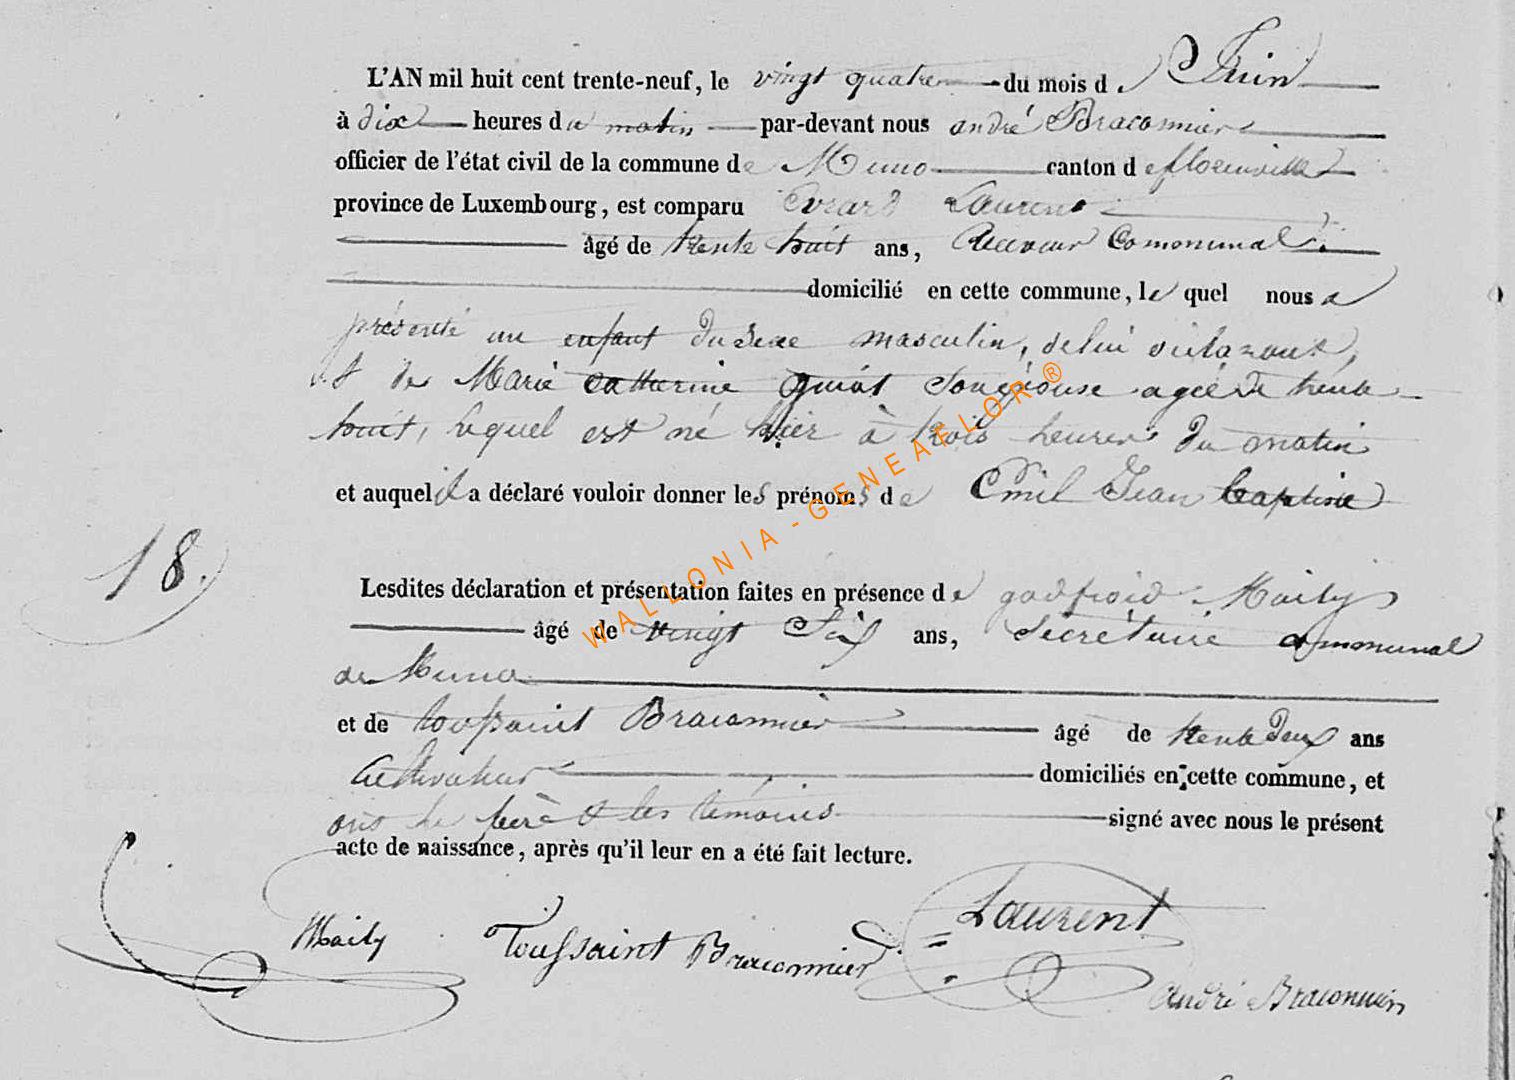 L'AN mil huit cent trente-neuf, le vingt quatre du mois de Juin
à dix heures du matin par-devant nous andré Braconnier
officier de l'état civil de la commune de Muno canton de florenville
province de Luxembourg, est comparu Evrard Laurent
âgé de trente huit ans, Receveur Communal
domicilié en cette commune, le quel nous a
présenté un enfant du sexe masculin, de lui déclarant,
et de Marie Catherine Guiot Son épouse agée de trente
huit, lequel est né hier à trois heures du matin
et auquel il a déclaré vouloir donner les prénoms de Emil Jean baptiste
18.
Lesdites déclaration et présentation faites en présence de godfroid Maily
âgé de vingt Six ans, Secrétaire communal
de Muno
et de toussaint Braconnier âgé de trente deux ans
Cultivateur domiciliés en cette commune, et
ont le père et les témoins signé avec nous le présent
acte de naissance, après qu'il leur en a été fait lecture.
Maily Toussaint Braconnier Laurent
André Braconnier
WALLONIA-GENEAFLOR®